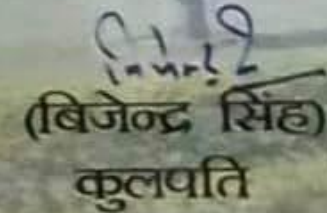 (बिजेन्द्र सिंह)
कुलपति